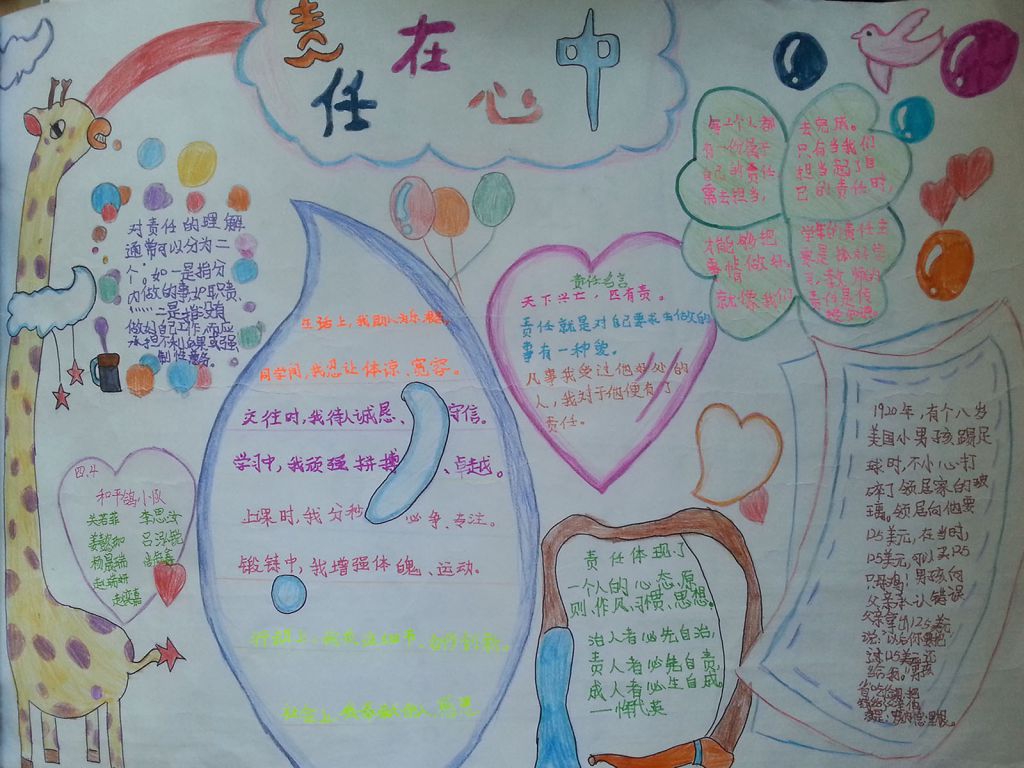 责任在心中
对责任的理解
通常可以分为二
个:如一是指分
内做的事如职责、
二是指没有
做好自己工作,而应
承担不利后果或强
制性义务。
四.4
和平鸽小队
关若菲 李思汝
杨晨瑞
生活上,我助人为乐
同学间,我忍让体谅、宽容。
交往时,我待人诚恳、守信。
学习中,我顽强拼搏、卓越。
上课时,我分秒必争、专注。
锻链中,我增强体魄、运动。
责任名言
天下兴亡,匹有责。
责任就是对自己要求去做的
事有一种爱。
凡事我受过他好处的
人,我对于他便有了
责任。
每一个人都
有一份属于
自己的责任
需去担当,
去完成。
只有当我们
担当起了自
己的责任时,
才能够把
事情做好,
就像我们
学生的责任主
要是搞好学
习,教师的
责任是
责任体现了
一个人的心态、原
则、作风、习惯、思想。
治人者必先自治,
责人者必先自责,
成人者必生自成。
1920年,有个八岁
美国小男孩踢足
球时,不小心打
碎了领居家的玻
璃。领居向他要
12.5美元,在当时,
12.5美元,可以买125
只母鸡!男孩向
父亲承认错误
父亲拿出12.5美元
说:以后你要把
这12.5美元还
给我。男孩